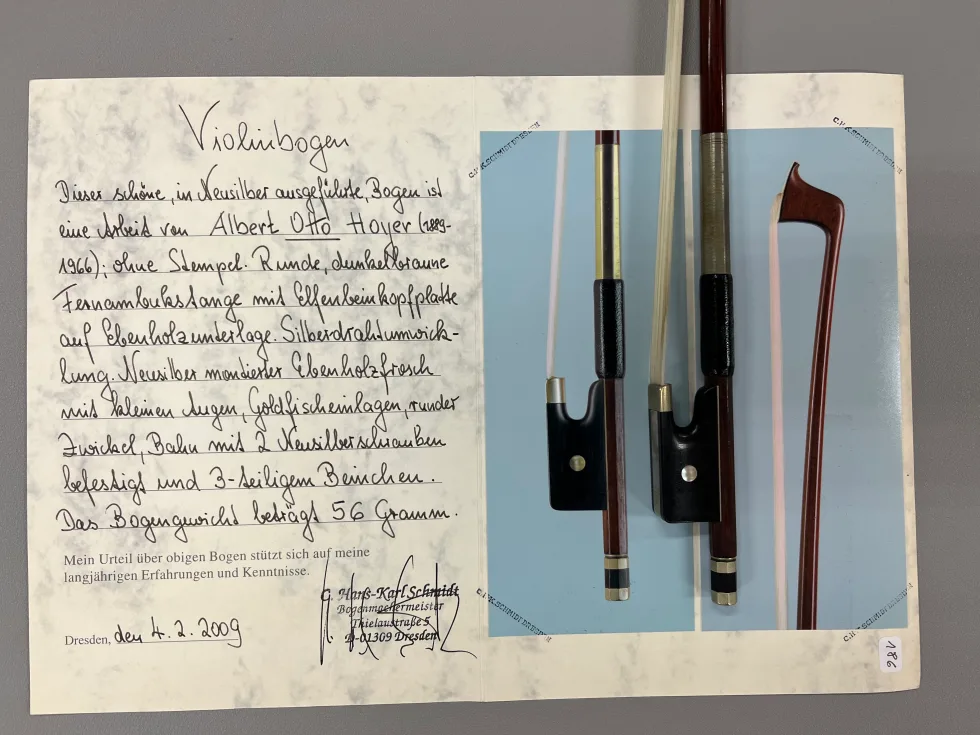 Violinbogen
Dieser schöne, in Neusilber ausgeführte, Bogen ist
eine Arbeit von Albert Otto Hoyer (1889-
1966); ohne Stempel. Runde, dunkelbraune
Fernambukstange mit Elfenbeinkopfplatte
auf Ebenholzunterlage. Silberdrahtumwick-
lung. Neusilber montierter Ebenholzfrosch
mit kleinen Augen, Goldfischeinlagen, runder
Zwickel, Bahn mit 2 Neusilberschrauben
befestigt und 3-teiligem Beinchen.
Das Bogengewicht beträgt 56 Gramm.
Mein Urteil über obigen Bogen stützt sich auf meine
langjährigen Erfahrungen und Kenntnisse.
Dresden, den 4. 2. 2009
C. Hans-Karl Schmidt
Bogenmachermeister
Thielaustraße 5
D-01309 Dresden
C.H.K.SCHMIDT DRESDEN
C.H.K.SCHMIDT DRESDEN
C.H.K.SCHMIDT DRESDEN
C.H.K.SCHMIDT DRESDEN
186